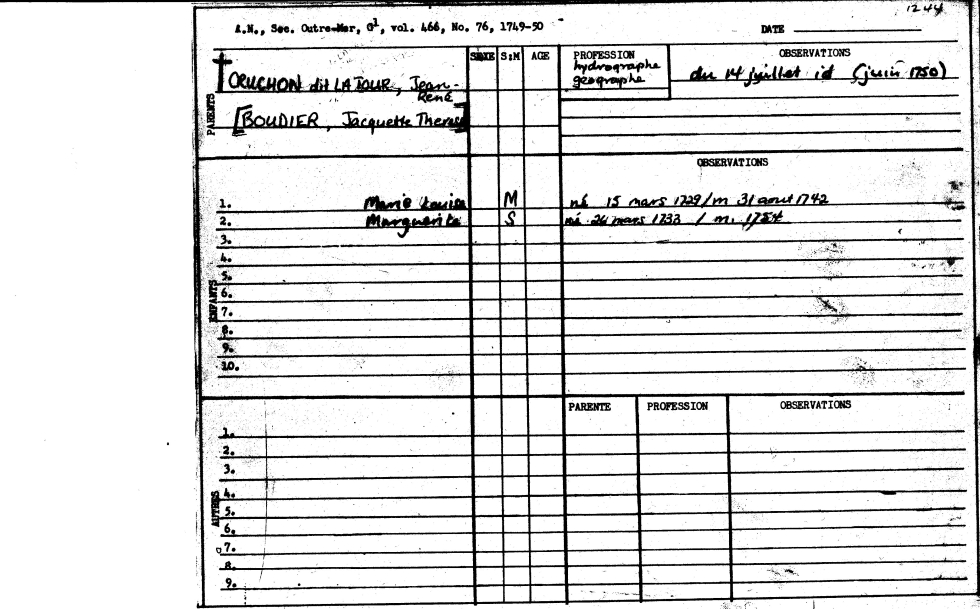 1244
A.N., Sec. Outre-Mer, G1, vol. 466, No. 76, 1749-50 DATE
SEXE S:M AGE PROFESSION OBSERVATIONS
hydrographe
géographe
du 14 juillet id (juin 1750)
CRUCHON dit LA TOUR, Jean-
René
PARENTS
[BOUDIER, Jacquette Therese]
OBSERVATIONS
1. Marie Louise M né 15 mars 1729/m 31 aout 1742
2. Marguerite S né 26 mars 1733 / m. 1754
3.
4.
5.
ENFANTS
6.
7.
8.
9.
10.
PARENTE PROFESSION OBSERVATIONS
1.
2.
3.
4.
AUTRES
5.
6.
7.
8.
9.